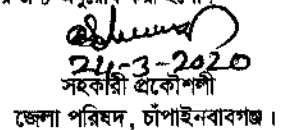 24-3-2020
সহকারী প্রকৌশলী
জেলা পরিষদ, চাঁপাইনবাবগঞ্জ।